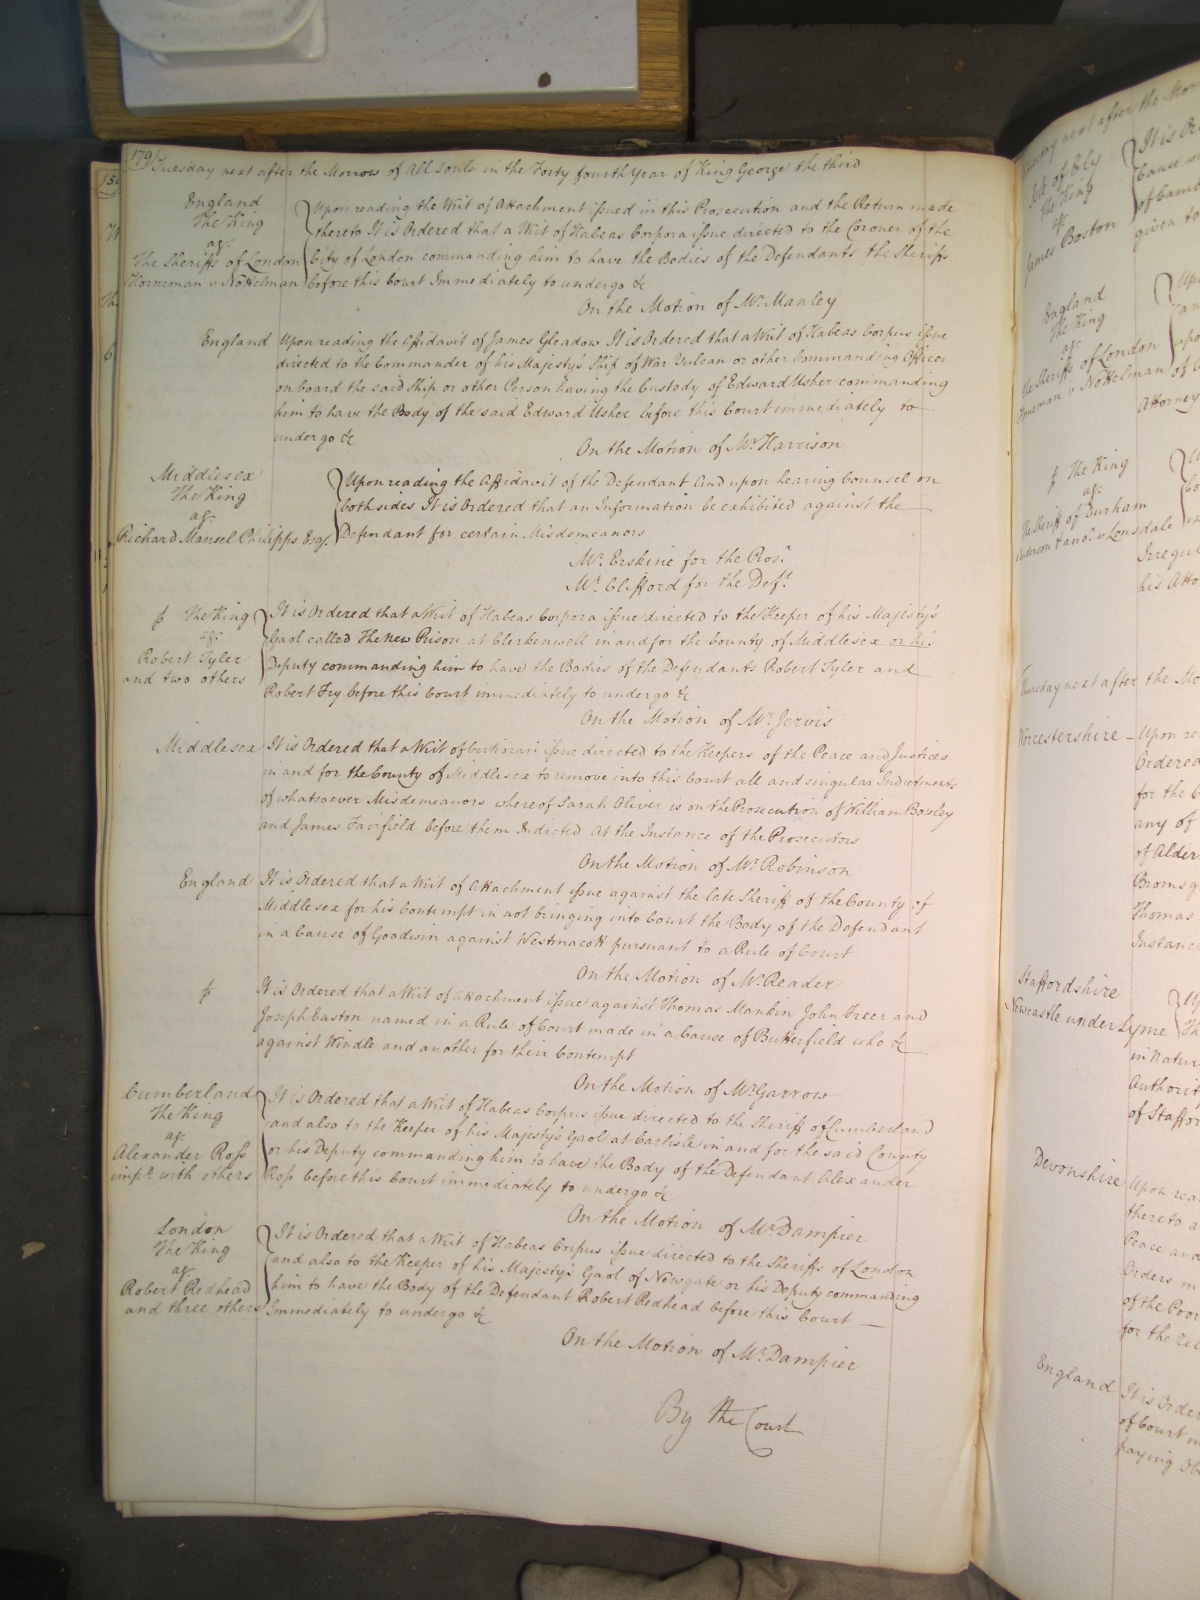 179
Tuesday next after the Morrow of All Souls in the Forty fourth Year of King George the third
England
The King
agt
The Sheriffs of London
Horneman v Nottelman
Upon reading the Writ of Attachment issued in this Prosecution and the Return made
thereto It is Ordered that a Writ of Habeas Corpora issue directed to the Coroner of the
City of London commanding him to have the Bodies of the Defendants the Sheriffs
before this Court Immediately to undergo &c
On the Motion of Mr. Manley
England
Upon reading the Affidavit of James Gleadow It is Ordered that a Writ of Habeas Corpus issue
directed to the Commander of his Majesty's Ship of War Vulcan or other Commanding Officer
on board the said Ship or other Person having the Custody of Edward Usher commanding
him to have the Body of the said Edward Usher before this Court immediately to
undergo &c
On the Motion of Mr Harrison
Middlesex
The King
agt
Richard Mansel Philipps Esqr.
Upon reading the Affidavit of the Defendant And upon hearing Counsel on
both sides It is Ordered that an Information be exhibited against the
Defendant for certain Misdemeanors
Mr. Erskine for the Prosr.
Mr. Clifford for the Deft.
The King
agt
Robert Tyler
and two others
It is Ordered that a Writ of Habeas Corpora issue directed to the Keeper of his Majesty's
Gaol called The New Prison at Clerkenwell in and for the County of Middlesex or his
Deputy commanding him to have the Bodies of the Defendants Robert Tyler and
Robert Fry before this Court immediately to undergo &c
On the Motion of Mr Jervis
Middlesex
It is Ordered that a Writ of Certiorari issue directed to the Keepers of the Peace and Justices
in and for the County of Middlesex to remove into this Court all and singular Indictments
of whatsoever Misdemeanors whereof Sarah Oliver is on the Prosecution of William Bowley
and James Fairfield before them Indicted At the Instance of the Prosecutors
On the Motion of Mr Robinson
England
It is Ordered that a Writ of Attachment issue against the late Sheriff of the County of
Middlesex for his Contempt in not bringing into Court the Body of the Defendant
in a Cause of Goodwin against Westmacott pursuant to a Rule of Court
On the Motion of Mr. Reader
It is Ordered that a Writ of Attachment issue against Thomas Mankin John Freer and
Joseph Easton named in a Rule of Court made in a Cause of Butterfield who &c
against Windle and another for their Contempt
On the Motion of Mr Garrow
Cumberland
The King
agt
Alexander Ross
impd. with others
It is Ordered that a Writ of Habeas Corpus issue directed to the Sheriff of Cumberland
and also to the Keeper of his Majesty's Gaol at Carlisle in and for the said County
or his Deputy commanding him to have the Body of the Defendant Alexander
Ross before this Court immediately to undergo &c
On the Motion of Mr Dampier
London
The King
agt
Robert Redhead
and three others
It is Ordered that a Writ of Habeas Corpus issue directed to the Sheriffs of London
and also to the Keeper of his Majesty's Gaol of Newgate or his Deputy commanding
him to have the Body of the Defendant Robert Redhead before this Court
Immediately to undergo &c
On the Motion of Mr. Dampier
By the Court
next after the
Isle of Ely
The King
agt
James Boston
It is
Cause
of
given to
England
The King
agt
The Sheriffs of London
Horneman v Nottelman
of
Attorney
The King
agt
The Sheriff of Durham
Anderson & anor. v Lonsdale
his
Thursday next after the
Worcestershire
Upon
Ordered
for the
any of
of
Thomas
Staffordshire
Newcastle under Lyme
in
of
Devonshire
Upon
thereto
Peace and
Orders
of the Poor
for the
England
It is
of Court